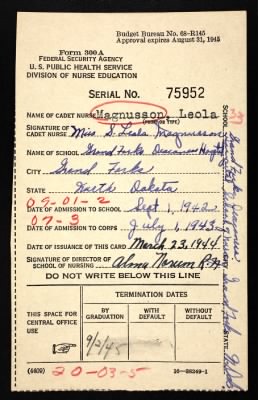 Budget Bureau No. 68-R145
Approval expires August 31, 1945
Form 300A
FEDERAL SECURITY AGENCY
U. S. PUBLIC HEALTH SERVICE
DIVISION OF NURSE EDUCATION
SERIAL NO. 75952
NAME OF CADET NURSE Magnusson, Leola
(PRINT OR TYPE)
SIGNATURE OF CADET NURSE Miss D. Leola Magnusson
NAME OF SCHOOL Grand Forks Deaconess Hospital
CITY Grand Forks
STATE North Dakota
09-01-2
DATE OF ADMISSION TO SCHOOL Sept 1, 1942
07-3
DATE OF ADMISSION TO CORPS July 1, 1943
DATE OF ISSUANCE OF THIS CARD March 23, 1944
SIGNATURE OF DIRECTOR OF SCHOOL OF NURSING Alma Noreum R.N.
DO NOT WRITE BELOW THIS LINE
THIS SPACE FOR CENTRAL OFFICE USE
TERMINATION DATES
BY GRADUATION
WITH DEFAULT
WITHOUT DEFAULT
9/2/45
(4409)
20-03-5
16-38249-1
SCHOOL
Grand Forks Deaconess
CITY
Grand Forks
N. Dak.